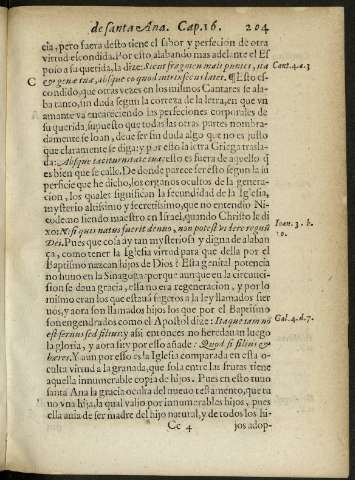 de santa Ana. Cap. 16. 204
cia, pero fuera desto tiene el sabor y perfecion de otra
virtud escondida. Por esto alabando mas adelante el Es
poso a su querida, la dize: Sicut fragmen mali punici, ita
Cant. 4. a. 3
C genæ tuæ, absque eo quod intrinsecus latet. ¶ Esto es-
condido, que otras vezes en los mismos Cantares se ala-
ba tanto, sin duda segun la corteza de la letra, en que vn
amante va encareciendo las perfeciones corporales de
su querida, supuesto que todas las otras partes nombra-
damente se loan, deue ser sin duda algo que no es justo
que claramente se diga: y por esto la letra Griega trasla-
da: Absque taciturnitate tua: esto es fuera de aquello q̃
es bien que se calle. De donde parece ser esto segun la su
perficie que he dicho, los organos ocultos de la genera-
cion, los quales significan la fecundidad de la Iglesia,
mysterio altissimo y secretissimo, que no entendio Ni-
codemo siendo maestro en Israel, quando Christo le di
xo: Nisi quis natus fuerit denuo, non potest videre regnũ
Ioan. 3. b.
10.
Dei. Pues que cosa ay tan mysteriosa y digna de alaban
ça, como tener la Iglesia virtud para que della por el
Baptismo nazcan hijos de Dios? Esta genital potencia
no huuo en la Sinagoga: porque aunque en la circunci-
sion se daua gracia, ella no era regeneracion, y por lo
mismo eran los que estauã sugetos a la ley llamados sier
uos, y aora son llamados hijos los que por el Baptismo
son engendrados como el Apostol dize: Itaque iam nõ
Gal. 4. a. 7.
est seruus sed filius: y assi entonces no heredauan luego
la gloria, y aora si: y por esso añade: Quod si filius &
hæres. Y aun por esso es la Iglesia comparada en esta o-
culta virtud a la granada, que sola entre las frutas tiene
aquella innumerable copia de hijos. Pues en esto tuuo
santa Ana la gracia oculta del nueuo testamento, que tu
uo vna hija, la qual valio por innumerables hijos, pues
ella auia de ser madre del hijo natural, y de todos los hi-
Cc 4 jos adop-